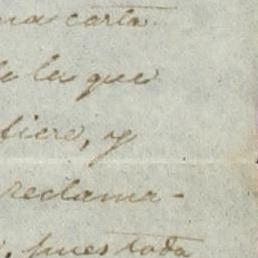 una carta
de la que
fiero, y
reclama-
, pues toda